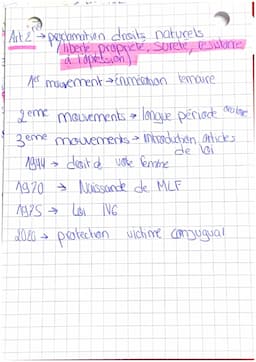 Art 2 → proclamation droits naturels
(liberté, propriété, sureté, résistance
à l'opression)
1er mouvement → énumération ternaire
2eme mouvements → longue période
3eme mouvements → introduction articles
de loi
1944 → droit de vote femme
1970 → Naissance de MLF
1975 → Loi IVG
2020 → protection victime conjugual